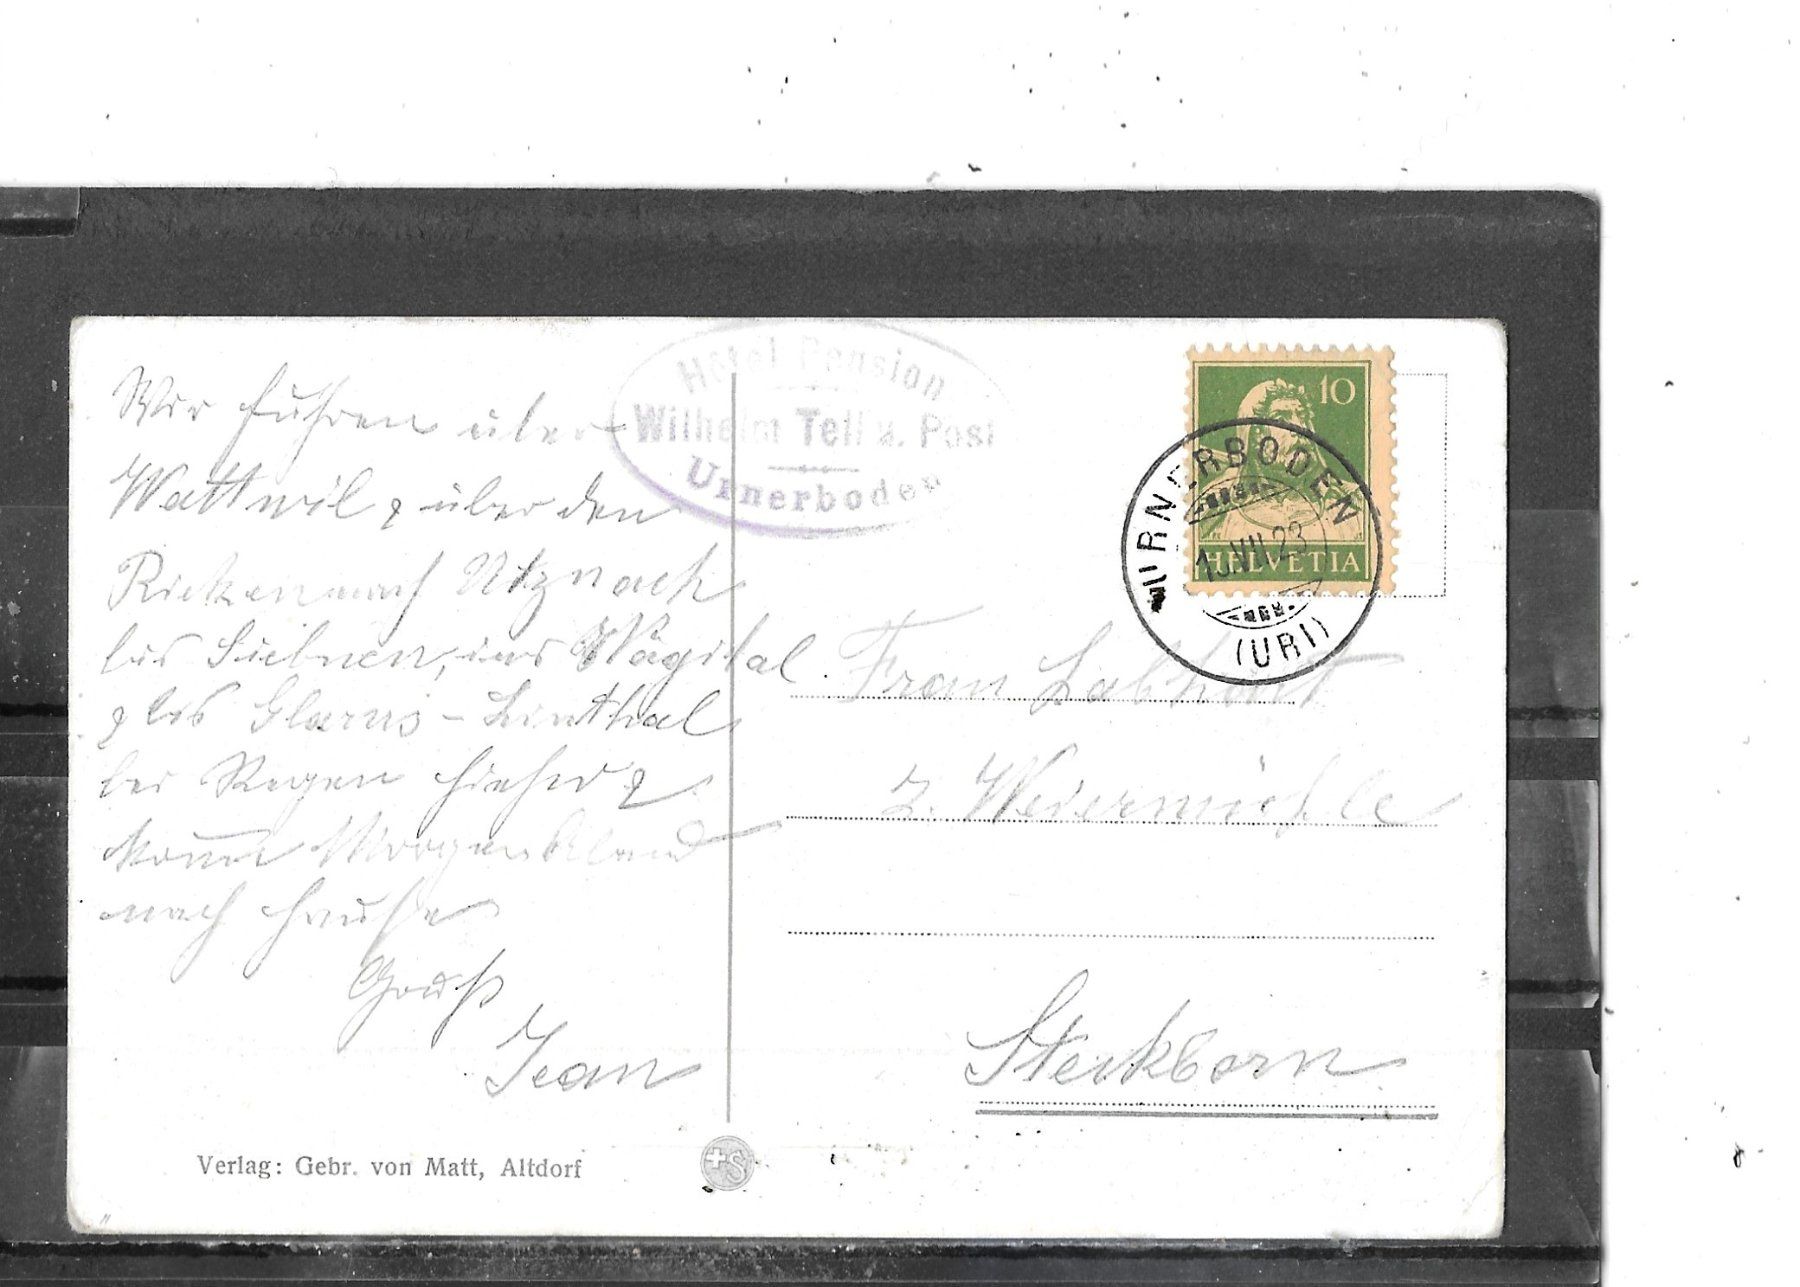 Wir fuhren über
Wattwil & über den
Ricken nach Utznach
bis Siebnen, ins Wägital
& bis Glarus - Linthal
bei Regen hieher &
kommen Morgen Abend
nach Hause
Gruß
Jean
Verlag: Gebr. von Matt, Altdorf
Hotel Pension
Wilhelm Tell u. Post
Urnerboden
10
HELVETIA
URNERBODEN
VII.23
(URI)
Frau Labhart
z. Weiermühle
Steckborn
+S